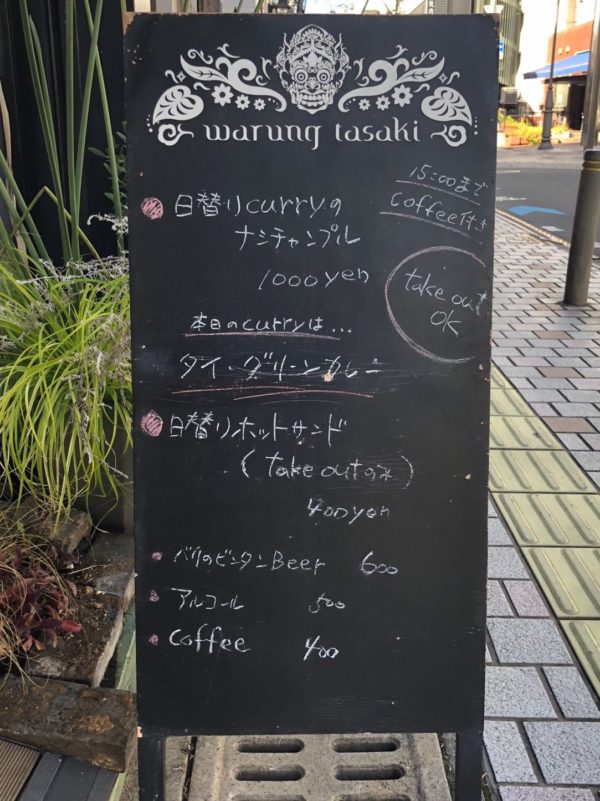 warung tasaki
15:00まで
coffee付き
日替りcurryの
ナシチャンプル
1000yen
take out
OK
本日のcurryは...
タイ・グリーンカレー
日替りホットサンド
(take outのみ)
400yen
バリのビンタンBeer 600
アルコール 500
coffee 400